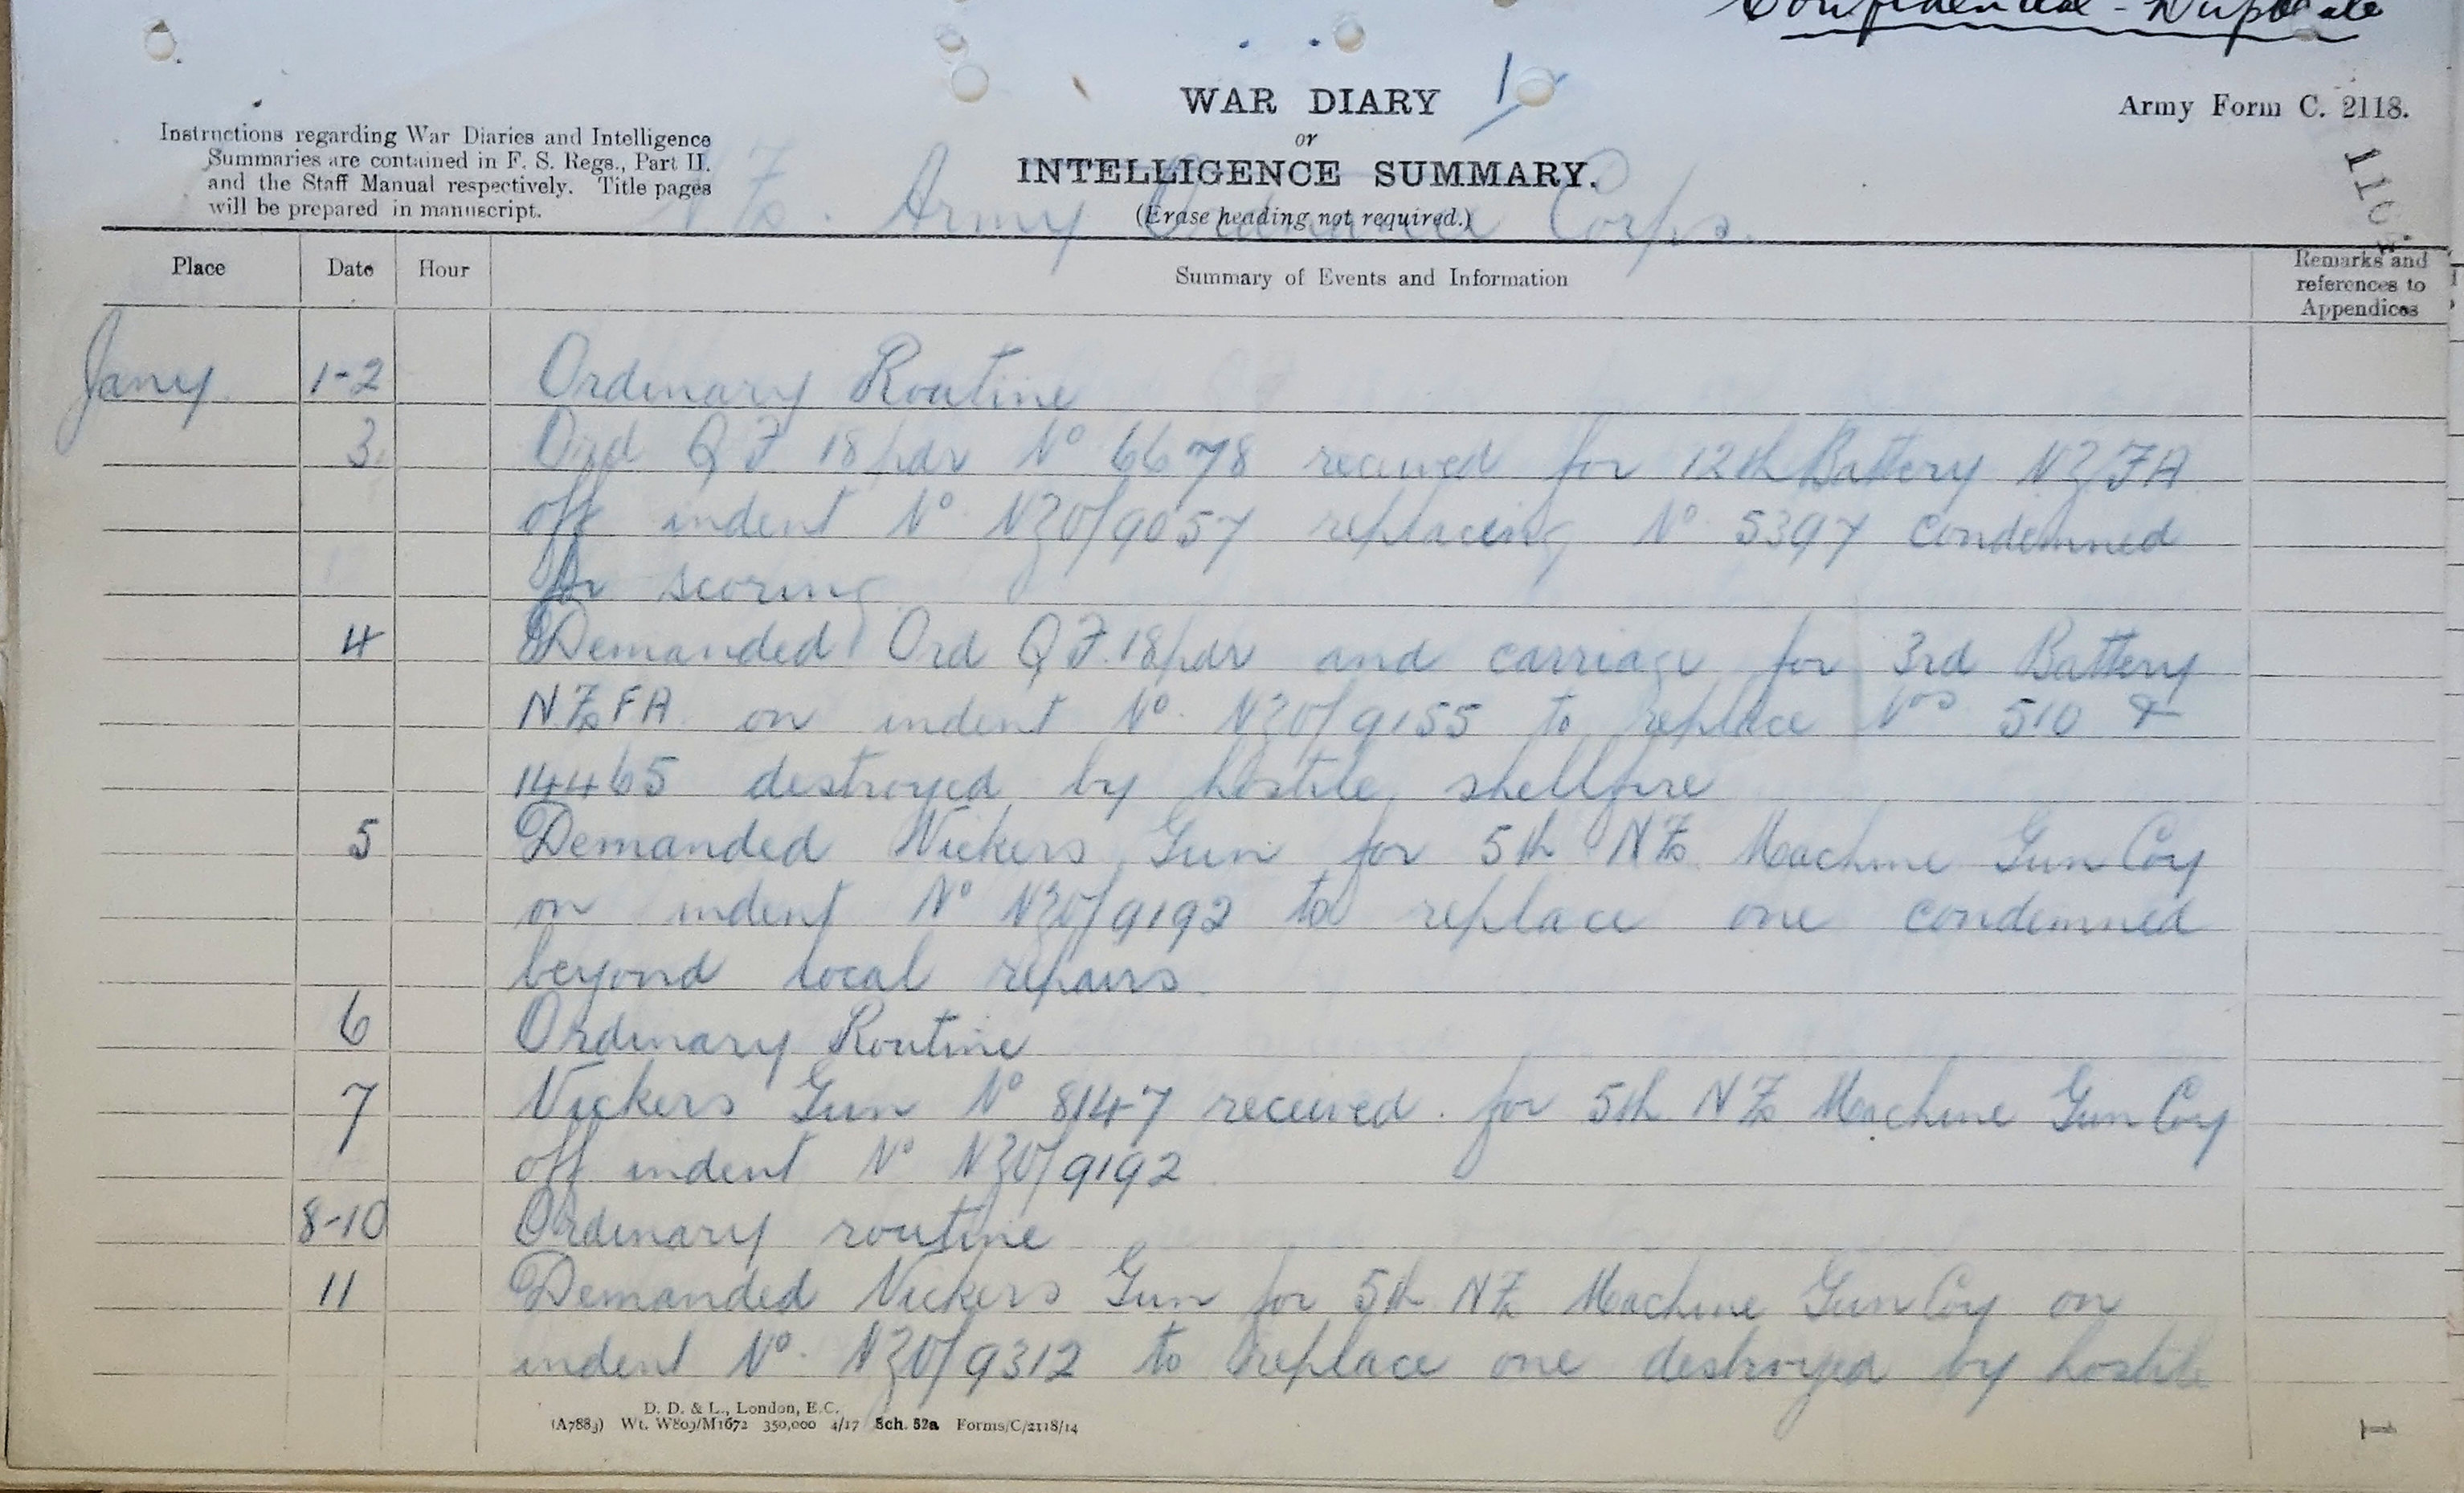 Confidential - Duplicate
WAR DIARY
or
INTELLIGENCE SUMMARY.
(Erase heading not required.)
Army Form C. 2118.
Instructions regarding War Diaries and Intelligence
Summaries are contained in F. S. Regs., Part II.
and the Staff Manual respectively. Title pages
will be prepared in manuscript.
NZ. Army Ordnance Corps.
Place Date Hour Summary of Events and Information Remarks and
references to
Appendices
Jany 1-2 Ordinary Routine
3. Ord QF 18 pdr No 6678 received for 12th Battery NZFA
off indent No. NZO/9057 replacing No. 5397 condemned
for scoring
4 Demanded Ord QF. 18pdr and carriage for 3rd Battery
NZFA on indent No. NZO/9155 to replace Nos 510 &
14465 destroyed by hostile shellfire
5 Demanded Vickers Gun for 5th NZ. Machine Gun Coy
on indent No NZO/9192 to replace one condemned
beyond local repairs.
6 Ordinary Routine
7 Vickers Gun No 8147 received. for 5th NZ Machine Gun Coy
off indent No NZO/9192
8-10 Ordinary routine
11 Demanded Vickers Gun for 5th NZ Machine Gun Coy on
indent No. NZO/9312 to replace one destroyed by hostile
D. D. & L., London, E.C.
(A7883) Wt. W809/M1672 350,000 4/17 Sch. 52a Forms/C/2118/14
1